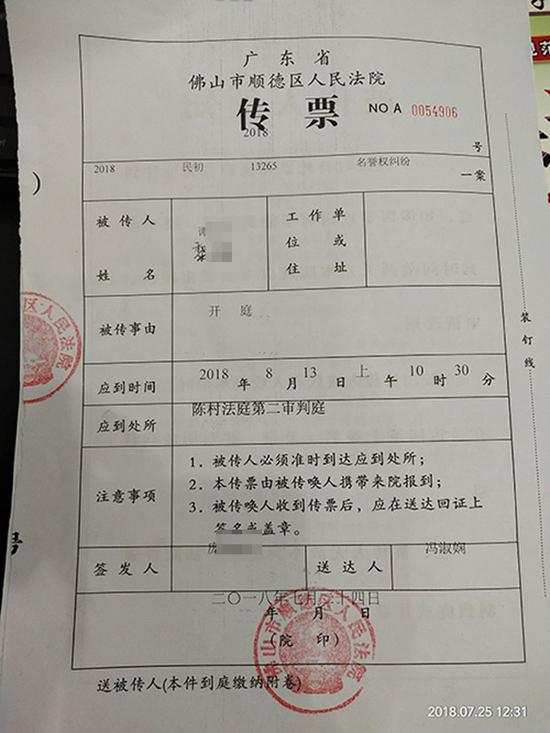 广东省
佛山市顺德区人民法院
传票 NO A 0054906
2018
号
2018 民初 13265 名誉权纠纷
一案
被传人
姓名
工作单
位或
住址
被传事由 开庭
应到时间 2018年8月13日上午10时30分
应到处所 陈村法庭第二审判庭
注意事项
1. 被传人必须准时到达应到处所；
2. 本传票由被传唤人携带来院报到；
3. 被传唤人收到传票后，应在送达回证上
签名或盖章。
签发人 送达人 冯淑娴
二〇一八年七月二十四日
年 月 日
(院 印)
佛山市顺德区人民法院
区人民法院
送被传人(本件到庭缴纳附卷)
装订线
2018.07.25 12:31